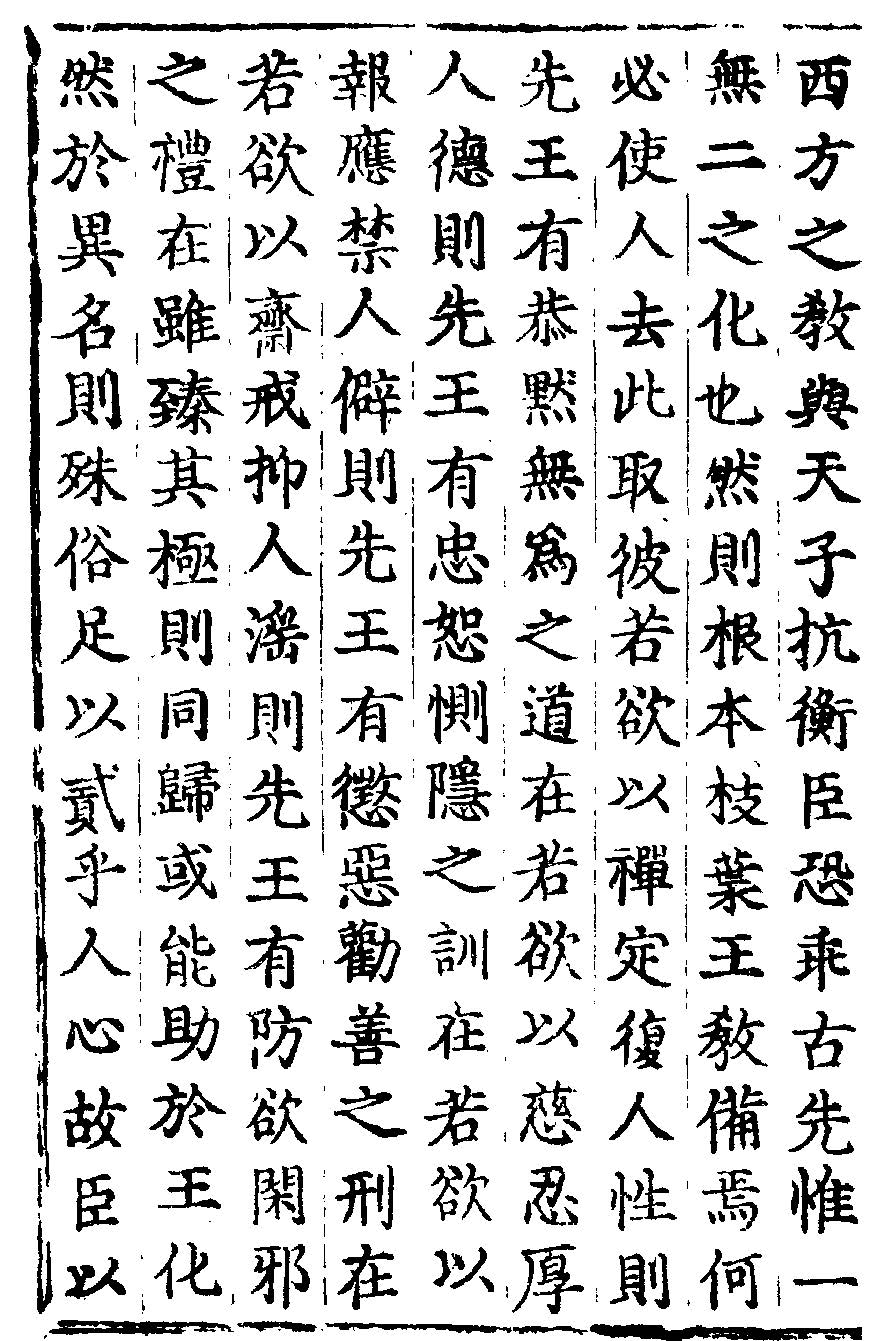 西方之教與天子抗衡臣恐乖古先惟一
無二之化也然則根本枝葉王教備焉何
必使人去此取彼若欲以禪定復人性則
先王有恭黙無爲之道在若欲以慈忍厚
人德則先王有忠恕惻隱之訓在若欲以
報應禁人僻則先王有懲惡勸善之刑在
若欲以齋戒抑人滛則先王有防欲閑邪
之禮在雖臻其極則同歸或能助於王化
然於異名則殊俗足以貳乎人心故臣以